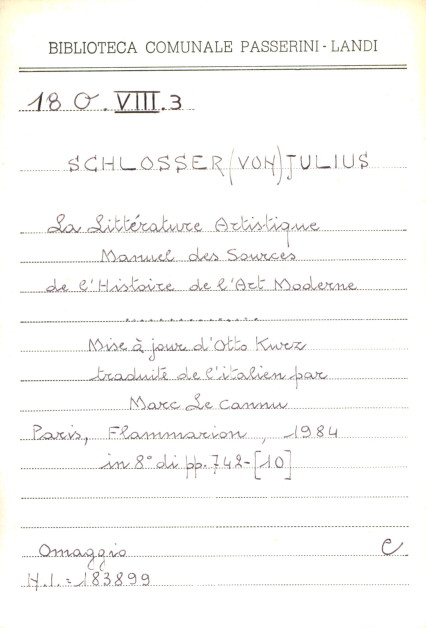 BIBLIOTECA COMUNALE PASSERINI-LANDI
18 O. VIII.3
SCHLOSSER (VON) JULIUS
La Littérature Artistique
Manuel des Sources
de l'Histoire de l'Art Moderne
..............
Mise à jour d'Otto Kurz
traduité de l'italien par
Marc Le Cannu
Paris, Flammarion, 1984
in 8° di pp. 742-[10]
Omaggio C
H.I. = 183899